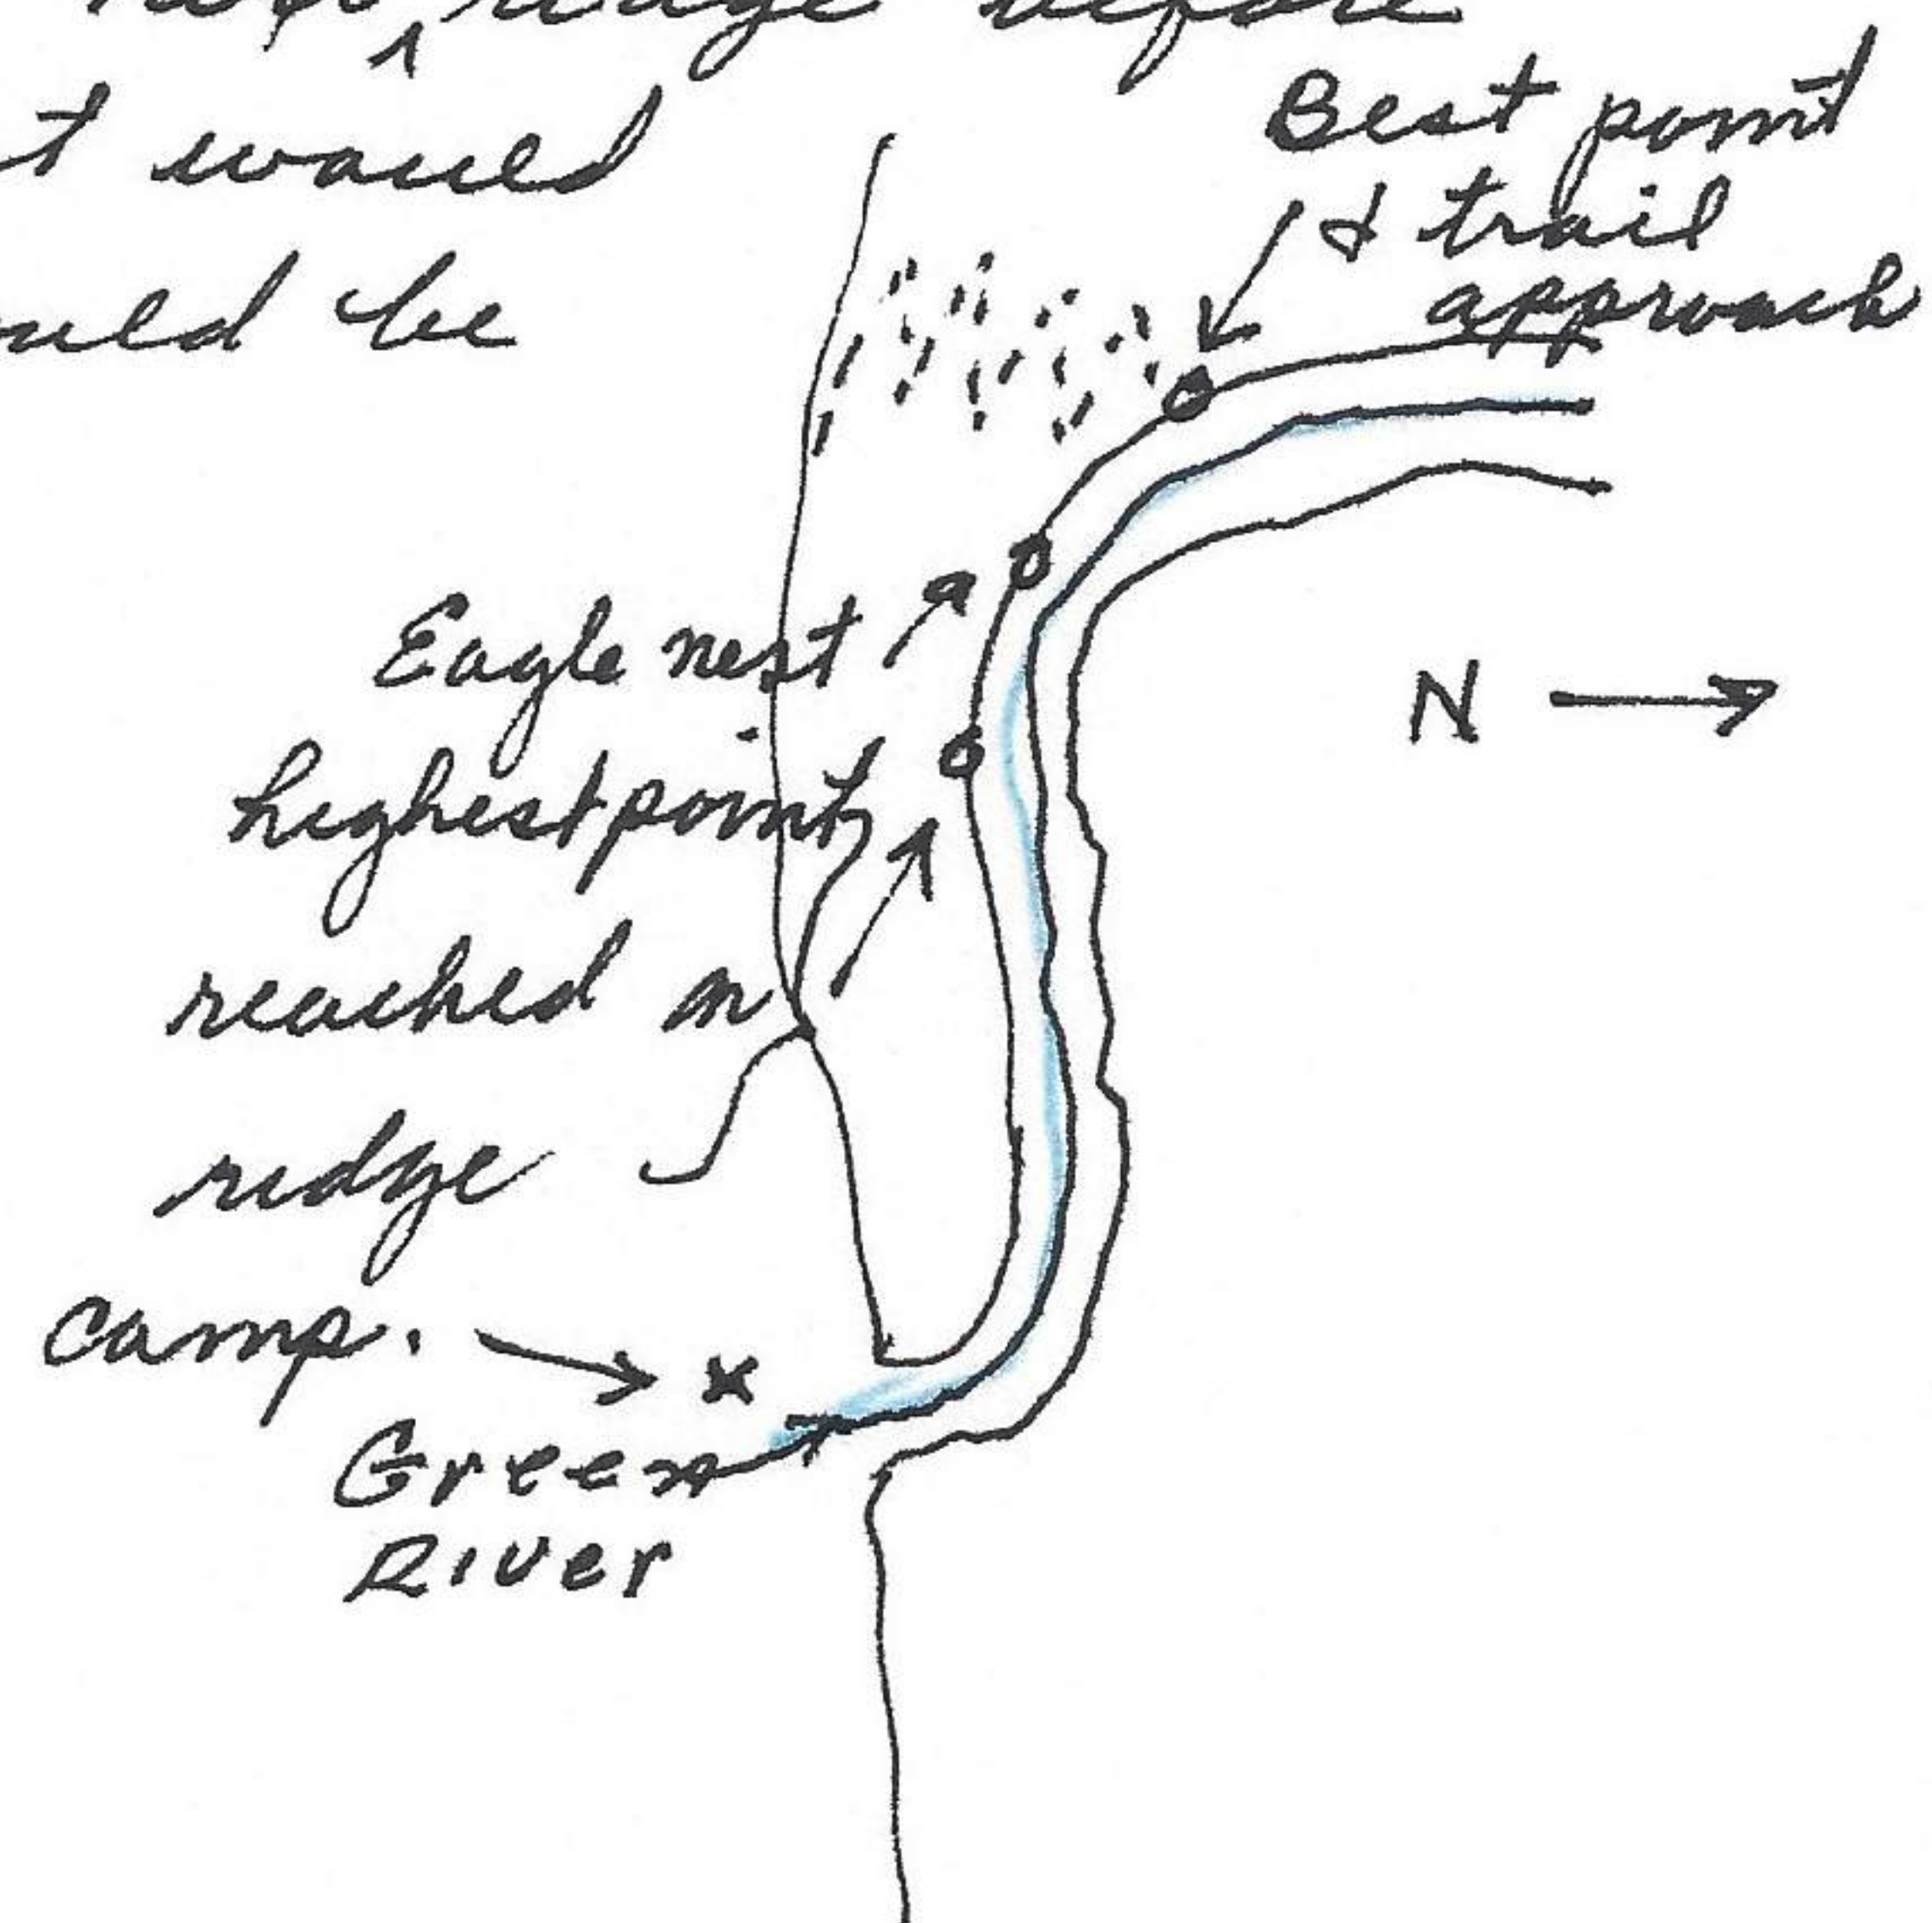 ridge before
t would
ould be
Best point
& trail
approach
Eagle nest
highest point
reached on
ridge
N
Camp.
x
Green
River